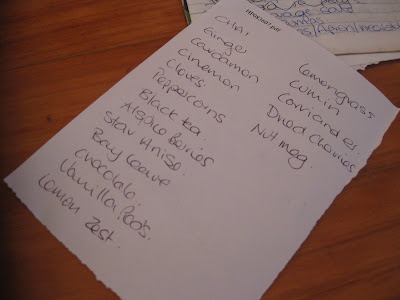 Chilli
Ginger
Cardamon
Cinemon
Cloves
Peppercorns
Black tea.
Allspice Berries
Star Anise.
Bay Leave
Chocolate.
Vanilla Pods.
Lemon Zest.
Lemongrass
Cumin
Corriander.
Dried Cherries
Nutmeg